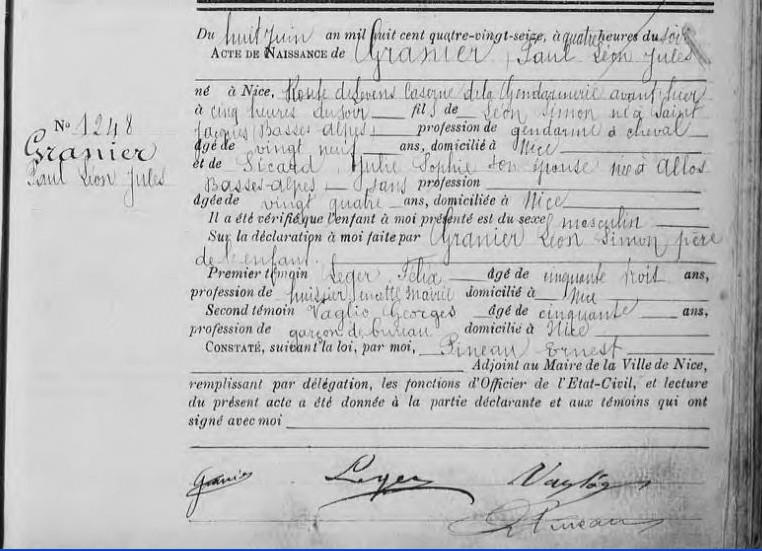 Du huit Juin an mil huit cent quatre-vingt-seize, à quatre heures du soir
ACTE DE NAISSANCE de Granier, Paul Léon Jules
né à Nice, Route de Levens Caserne de la Gendarmerie avant hier
à cinq heures du soir fils de Léon Simon né à Saint
Jacques (Basses-Alpes) profession de gendarme à cheval
âgé de vingt neuf ans, domicilié à Nice
et de Sicard, Julie Sophie son épouse née à Allos
Basses-Alpes sans profession
âgée de vingt quatre ans, domiciliée à Nice
Il a été vérifié que l'enfant à moi présenté est du sexe masculin
Sur la déclaration à moi faite par Granier Léon Simon père
de l'enfant.
Premier témoin Leger Félix âgé de cinquante trois ans,
profession de huissier mairie domicilié à Nice
Second témoin Vaglio Georges âgé de cinquante ans,
profession de garçon de bureau domicilié à Nice
CONSTATÉ, suivant la loi, par moi, Pineau Ernest
Adjoint au Maire de la Ville de Nice,
remplissant par délégation, les fonctions d'Officier de l'Etat-Civil, et lecture
du présent acte a été donnée à la partie déclarante et aux témoins qui ont
signé avec moi
N° 1248
Granier
Paul Léon Jules
Granier Leger Vaglio
E Pineau